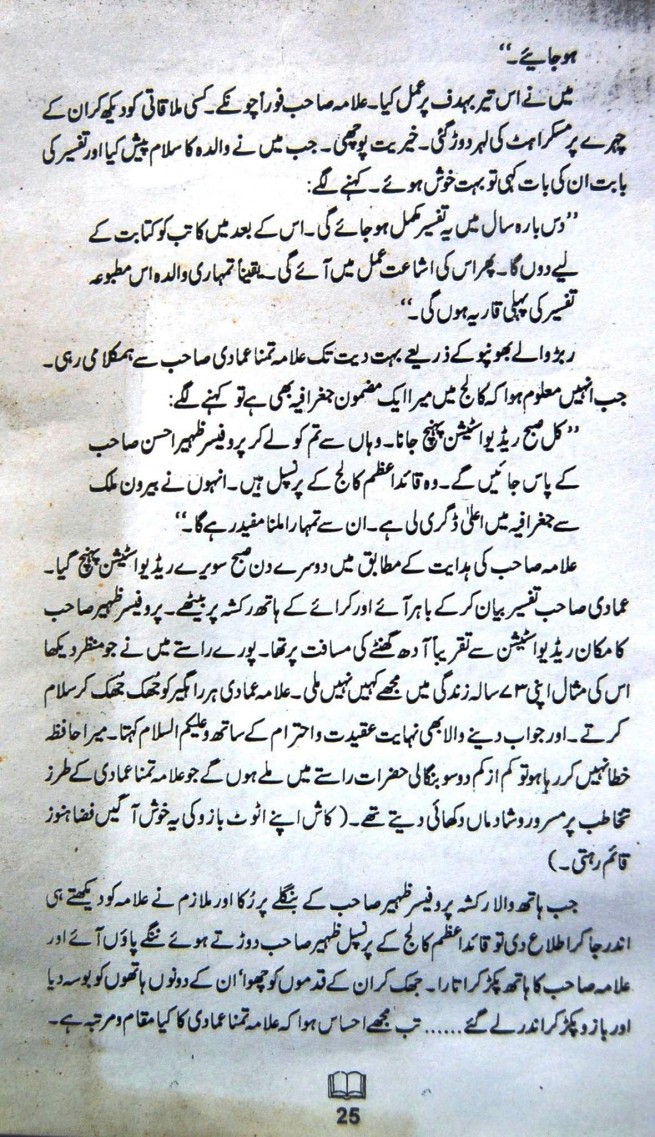 ہو جایئے۔‘‘
میں نے اس تیر بہدف پر عمل کیا۔ علامہ صاحب فوراً چونکے۔ کسی ملاقاتی کو دیکھ کر ان کے
چہرے پر مسکراہٹ کی لہر دوڑ گئی۔ خیریت پوچھی۔ جب میں نے والدہ کا سلام پیش کیا اور تفسیر کی
بابت ان کی بات کہی تو بہت خوش ہوئے۔ کہنے لگے:
’’دس بارہ سال میں یہ تفسیر مکمل ہو جائے گی۔ اس کے بعد میں کاتب کو کتابت کے
لیے دوں گا۔ پھر اس کی اشاعت عمل میں آئے گی۔ یقیناً تمہاری والدہ اس مطبوعہ
تفسیر کی پہلی قاریہ ہوں گی۔‘‘
ربڑ والے بھونپو کے ذریعے بہت دیت تک علامہ تمنا عمادی صاحب سے ہمکلامی رہی۔
جب انہیں معلوم ہوا کہ کالج میں میرا ایک مضمون جغرافیہ بھی ہے تو کہنے لگے:
’’کل صبح ریڈیو اسٹیشن پہنچ جانا۔ وہاں سے تم کو لے کر پروفیسر ظہیر احسن صاحب
کے پاس جائیں گے۔ وہ قائداعظم کالج کے پرنسپل ہیں۔ انہوں نے بیرون ملک
سے جغرافیہ میں اعلیٰ ڈگری لی ہے۔ ان سے تمہارا ملنا مفید رہے گا۔‘‘
علامہ صاحب کی ہدایت کے مطابق میں دوسرے دن صبح سویرے ریڈیو اسٹیشن پہنچ گیا۔
عمادی صاحب تفسیر بیان کر کے باہر آئے اور کرائے کے ہاتھ رکشہ پر بیٹھے۔ پروفیسر ظہیر صاحب
کا مکان ریڈیو اسٹیشن سے تقریباً آدھ گھنٹے کی مسافت پر تھا۔ پورے راستے میں نے جو منظر دیکھا
اس کی مثال اپنی ۷۳ سالہ زندگی میں مجھے کہیں نہیں ملی۔ علامہ عمادی ہر راہگیر کو جُھک جُھک کر سلام
کرتے۔ اور جواب دینے والا بھی نہایت عقیدت و احترام کے ساتھ وعلیکم السلام کہتا۔ میرا حافظہ
خطا نہیں کر رہا ہو تو کم از کم دو سو بنگالی حضرات راستے میں ملے ہوں گے جو علامہ تمنا عمادی کے طرز
تخاطب پر مسرور و شادماں دکھائی دیتے تھے۔ (کاش اپنے اٹوٹ بازو کی یہ خوش آگیں فضا ہنوز
قائم رہتی۔)
جب ہاتھ والا رکشہ پروفیسر ظہیر صاحب کے بنگلے پر رُکا اور ملازم نے علامہ کو دیکھتے ہی
اندر جا کر اطلاع دی تو قائداعظم کالج کے پرنسپل ظہیر صاحب دوڑتے ہوئے ننگے پاؤں آئے اور
علامہ صاحب کا ہاتھ پکڑ کر اتارا۔ جھک کر ان کے قدموں کو چھوا‘ ان کے دونوں ہاتھوں کو بوسہ دیا
اور بازو پکڑ کر اندر لے گئے...... تب مجھے احساس ہوا کہ علامہ تمنا عمادی کا کیا مقام و مرتبہ ہے۔
25